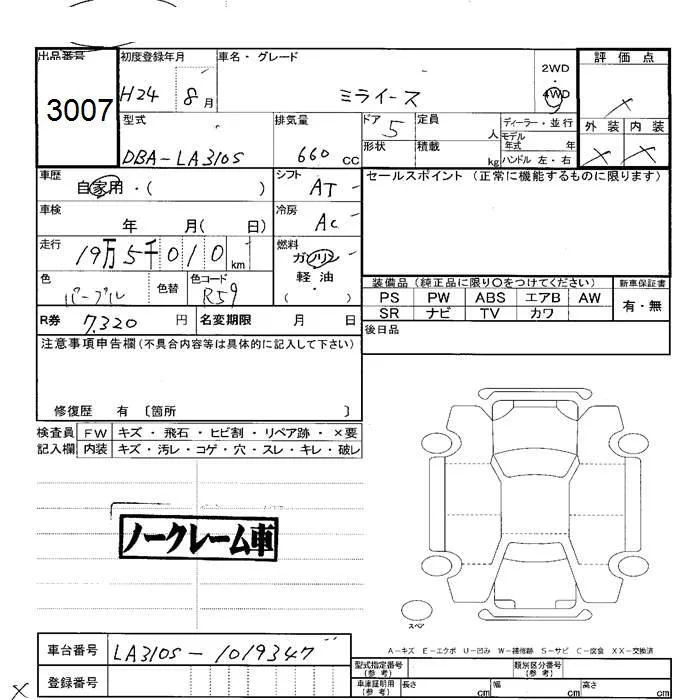 出品番号 初度登録年月 車名・グレード 2WD 評価点
3007 H24 8月 ミライース 4WD ×
型式 排気量 ドア 定員 ディーラー・並行 外装 内装
DBA-LA310S 660 cc 5 人 モデル年式 年 × ×
形状 積載 kg ハンドル 左・右
車歴 シフト セールスポイント (正常に機能するものに限ります)
自家用・( ) AT
車検 冷房
年 月( 日) AC
走行 燃料
19万5千010km ガソリン
軽油
( )
色 色替 色コード 装備品(純正品に限り〇をつけてください) 新車保証書
パープル R59 PS PW ABS エアB AW 有・無
SR ナビ TV カワ
R券 7,320 円 名変期限 月 日 後日品
注意事項申告欄(不具合内容等は具体的に記入して下さい)
修復歴 有 〔箇所 〕
検査員 FW キズ・飛石・ヒビ割・リペア跡・×要
記入欄 内装 キズ・汚レ・コゲ・穴・スレ・キレ・破レ
ノークレーム車
スペア
A-キズ E-エクボ U-凹み W-補修跡 S-サビ C-腐食 XX-交換済
車台番号 LA310S-1019347
登録番号
型式指定番号(参考) 類別区分番号(参考)
車庫証明用(参考) 長さ cm 幅 cm 高さ cm
×